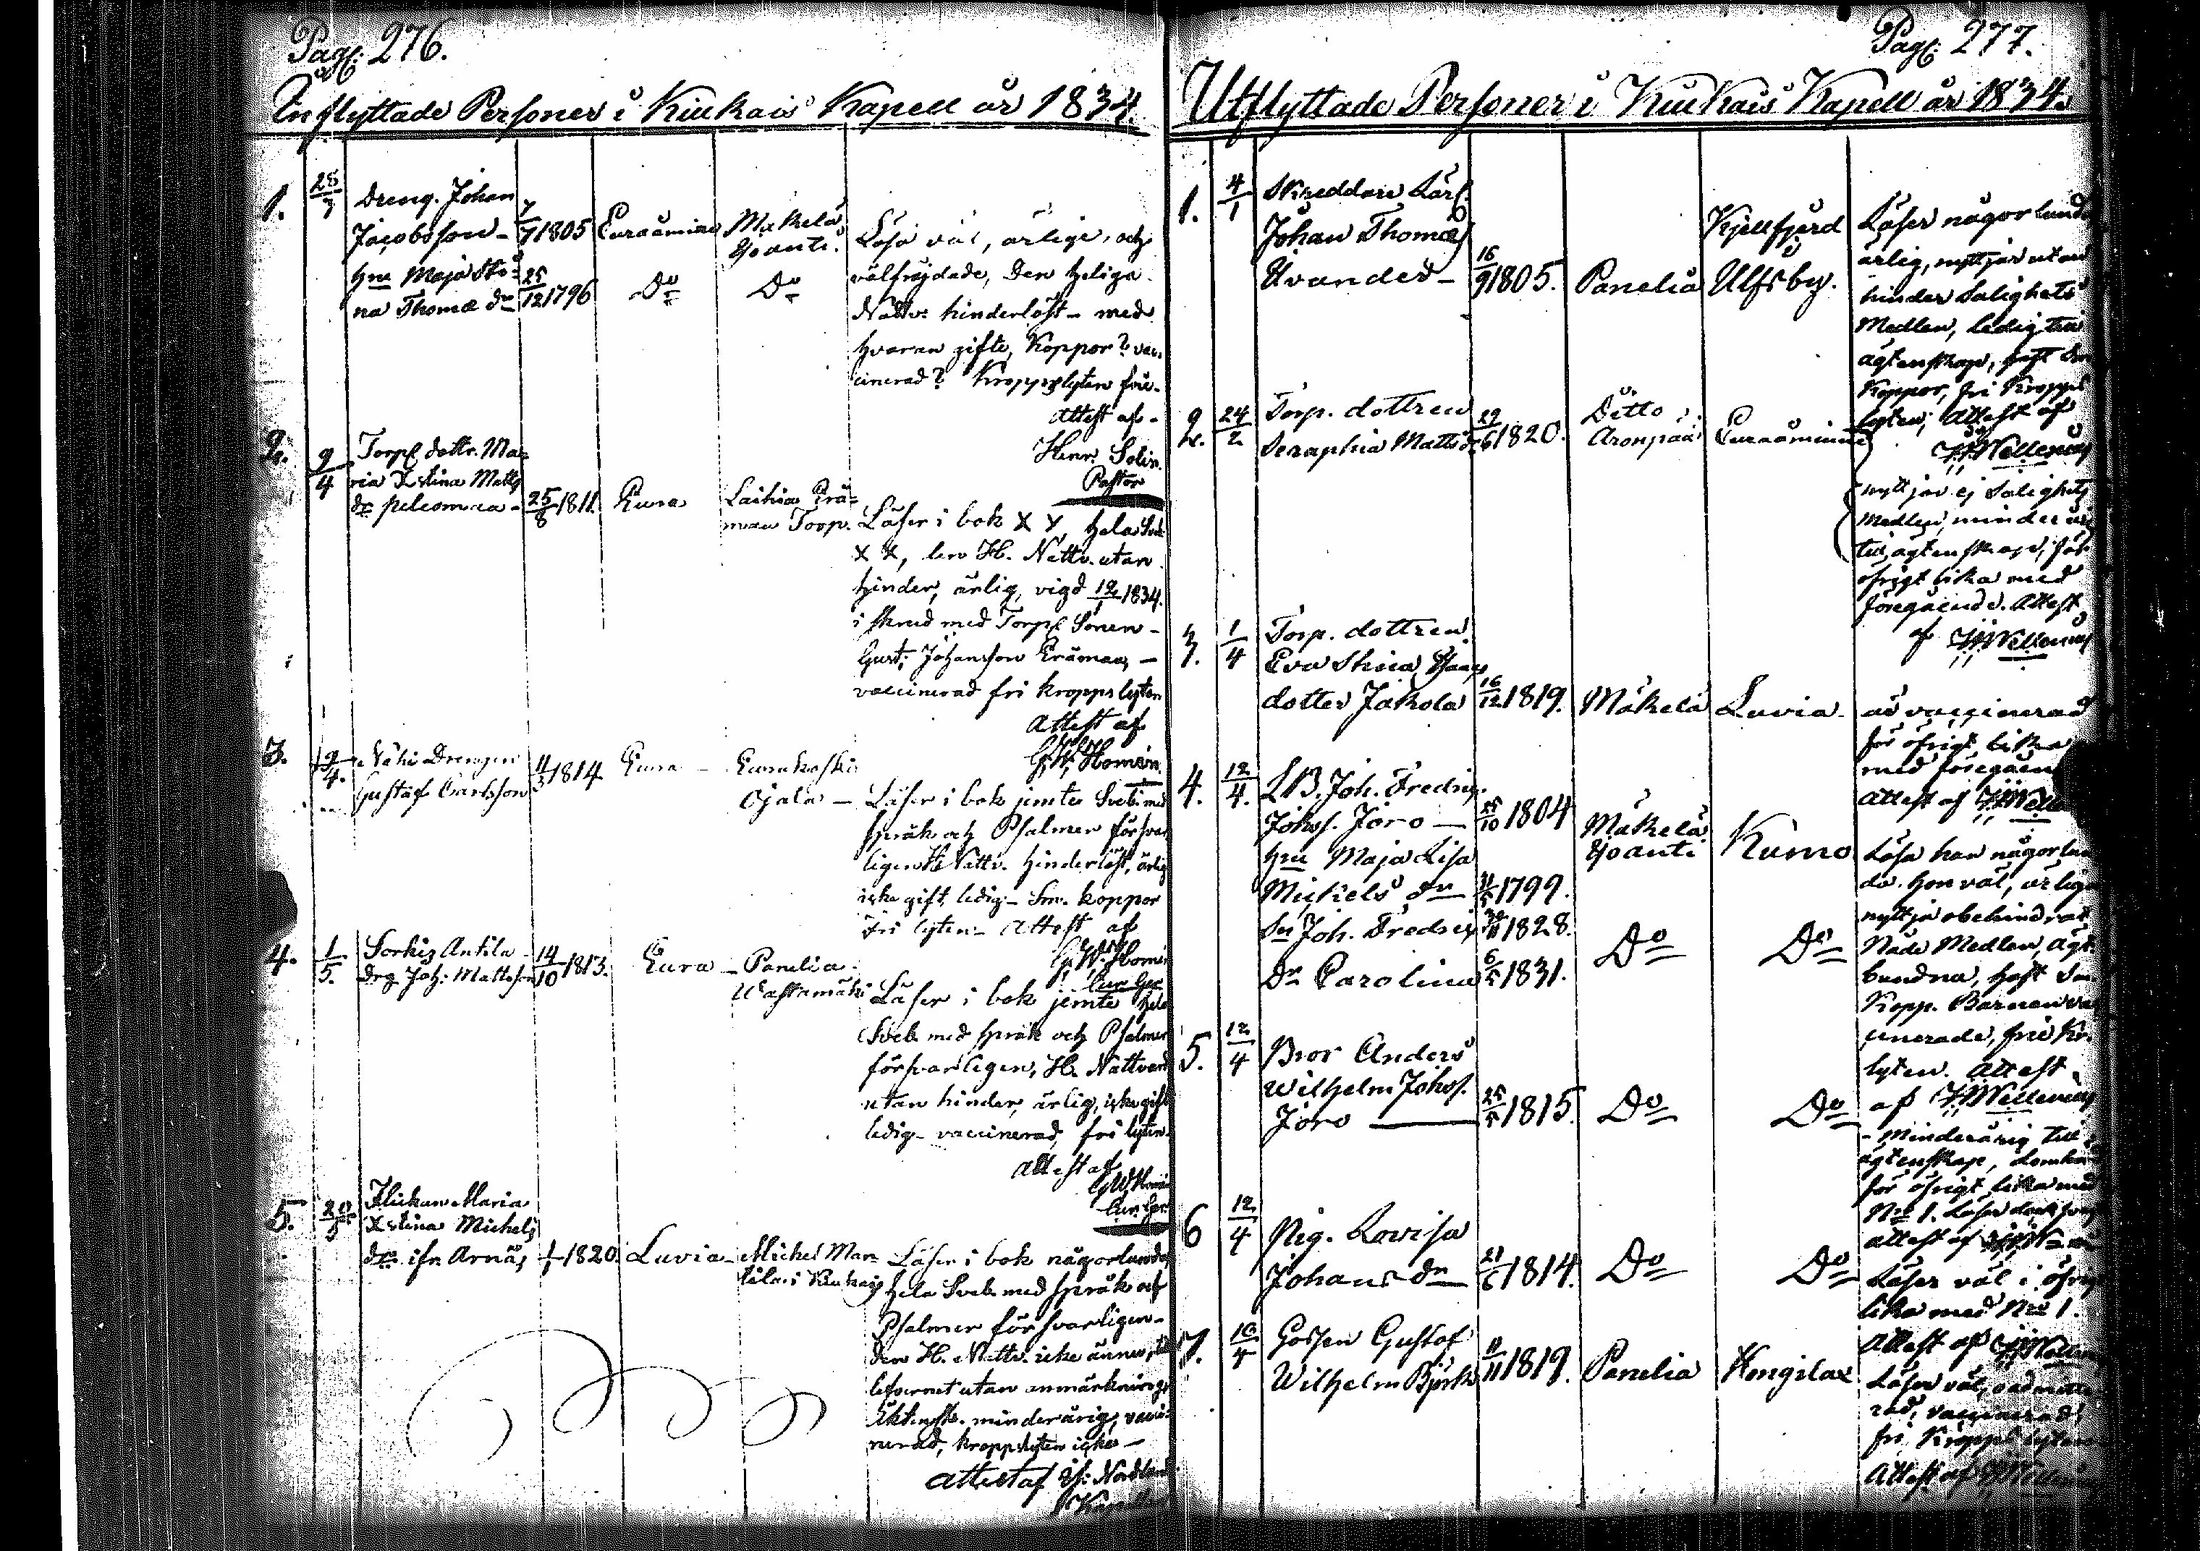 Pag: 276.
Inflyttade Personer i Kiukais Kapell år 1834.
1. 28/3 Dreng. Johan
Jacobsson - 7/7 1805 Euraåminne Mäkelä
Yoanti.
hru Maja Sti=
na Thomæ dr 25/12 1796 Do Do
Läsa väl, ärlige, och
välfräjdade, Den heliga
Nattv: hinderlöst - med
hvaran gifte, Koppor? vac=
cinerad? Kroppslyten frie.
Attest af -
Henr. Solin.
Pastor
2. 9/4 Torp. dottr. Ma=
ria Xstina Matts
dr 25/8 1811. Eura Laihia Erä=
maa Torp.
Läser i bok X X, hela Sveb.
X X, lev H. Nattv. utan
hinder, ärlig, vigd 12/1 1834.
i skrud med Torp. Sonen -
Gust: Johansson Erämaa, -
vaccinerad fri kroppslyten
Attest af
G. W. Homén.
3. 9/4. Drengen
Gustaf Carlsson 11/3 1814. Eura - Eurakoski
Ojala -
Läser i bok jemte Sveb. med
språk och Psalmer försvar
ligen H. Nattv. hinderlöst, ärlig
icke gift, ledig - Sm. koppor
fri lyten - Attest af
G. W. Homén
Cur. Ger.
4. 1/5. Sorkis Antila
drg Joh: Mattsson 14/10 1813. Eura - Panelia
Wastamäki
Läser i bok jemte hela
Sveb. med språk och Psalmer
försvarligen, H. Nattvard
utan hinder, ärlig, icke gift
ledig - vaccinerad, fri lyten.
Attest af
G W Homén
Cur. Ger.
5. 20/5 Flickan Maria
Xstina Michels
dr ifr. Arnäs 1/1 1820. Luvia - Michel Man=
tila i Kiukais
Läser i bok någorlunda,
hela Sveb. med språk och
Psalmer försvarligen -
den H. Nattv. icke ännu,
lefvernet utan anmärkning
Ektensk. minderårig, vacci=
nerad, kroppslyten icke -
attest af Nordlund
Kapell
Pag: 277.
Utflyttade Personer i Kiukais Kapell år 1834.
1. 4/1 Skreddare Lärl.
Johan Thomas
Uvander - 16/9 1805. Panelia Kjellfjerd
i
Ulfsby.
Läser någorlunda
ärlig, nyttjar utan
hinder Salighets
Medlen, ledig till
ägtenskap, haft Sm
Koppor, fri Kropps
lyten, Attest af
J. Wellenius
2. 24/2 Torp. dottren
Seraphia Matts dr 29/6 1820. Ditto
Aronpää Euraåminne
nyttjar ej Salighets
Medlen, minderårig
till ägtenskap, för
öfrigt lika med
föregående. Attest
af J. Wellenius
3. 1/4 Torp. dottren
Eva Stina Isaacs
dotter Jakola 16/12 1819. Mäkelä Luvia.
är vaccinerad
för öfrigt lika
med föregåen
Attest af J. Well
4. 12/4. L.B. Joh. Fredric
Johs. Joro - 25/10 1804 Mäkelä
Yoanti Kumo
hru Maja Lisa
Mickels dr 11/5 1799.
Sn Joh. Fredric 1828. Do Do
Dr Carolina 6/5 1831.
Läsa han någorlun
da. hon väl, ärliga
nyttja obehindrat
Nåde Medlen, ägt.
bundna, haft Sm
Kopp. Barnen vac
cinerade, frie Kr.
lyten. Attest
af J. Wellenius
5. 12/4 Bror Anders
Wilhelm Johs.
Joro 25/5 1815. Do Do
- minderårig till
ägtenskap,
för öfrigt lika med
No 1.
attest af
6 12/4 Pig. Lovisa
Johans dr 21/6 1814. Do Do
Läser väl i öfrigt
lika med No 1.
Attest af J. Wellen
7. 19/4 Gossen Gustaf
Wilhelm Björk 11/11 1819. Panelia Hongilax
Läser väl,
vaccinerad,
fri Kropps lyten
Attest af J. Wellenius